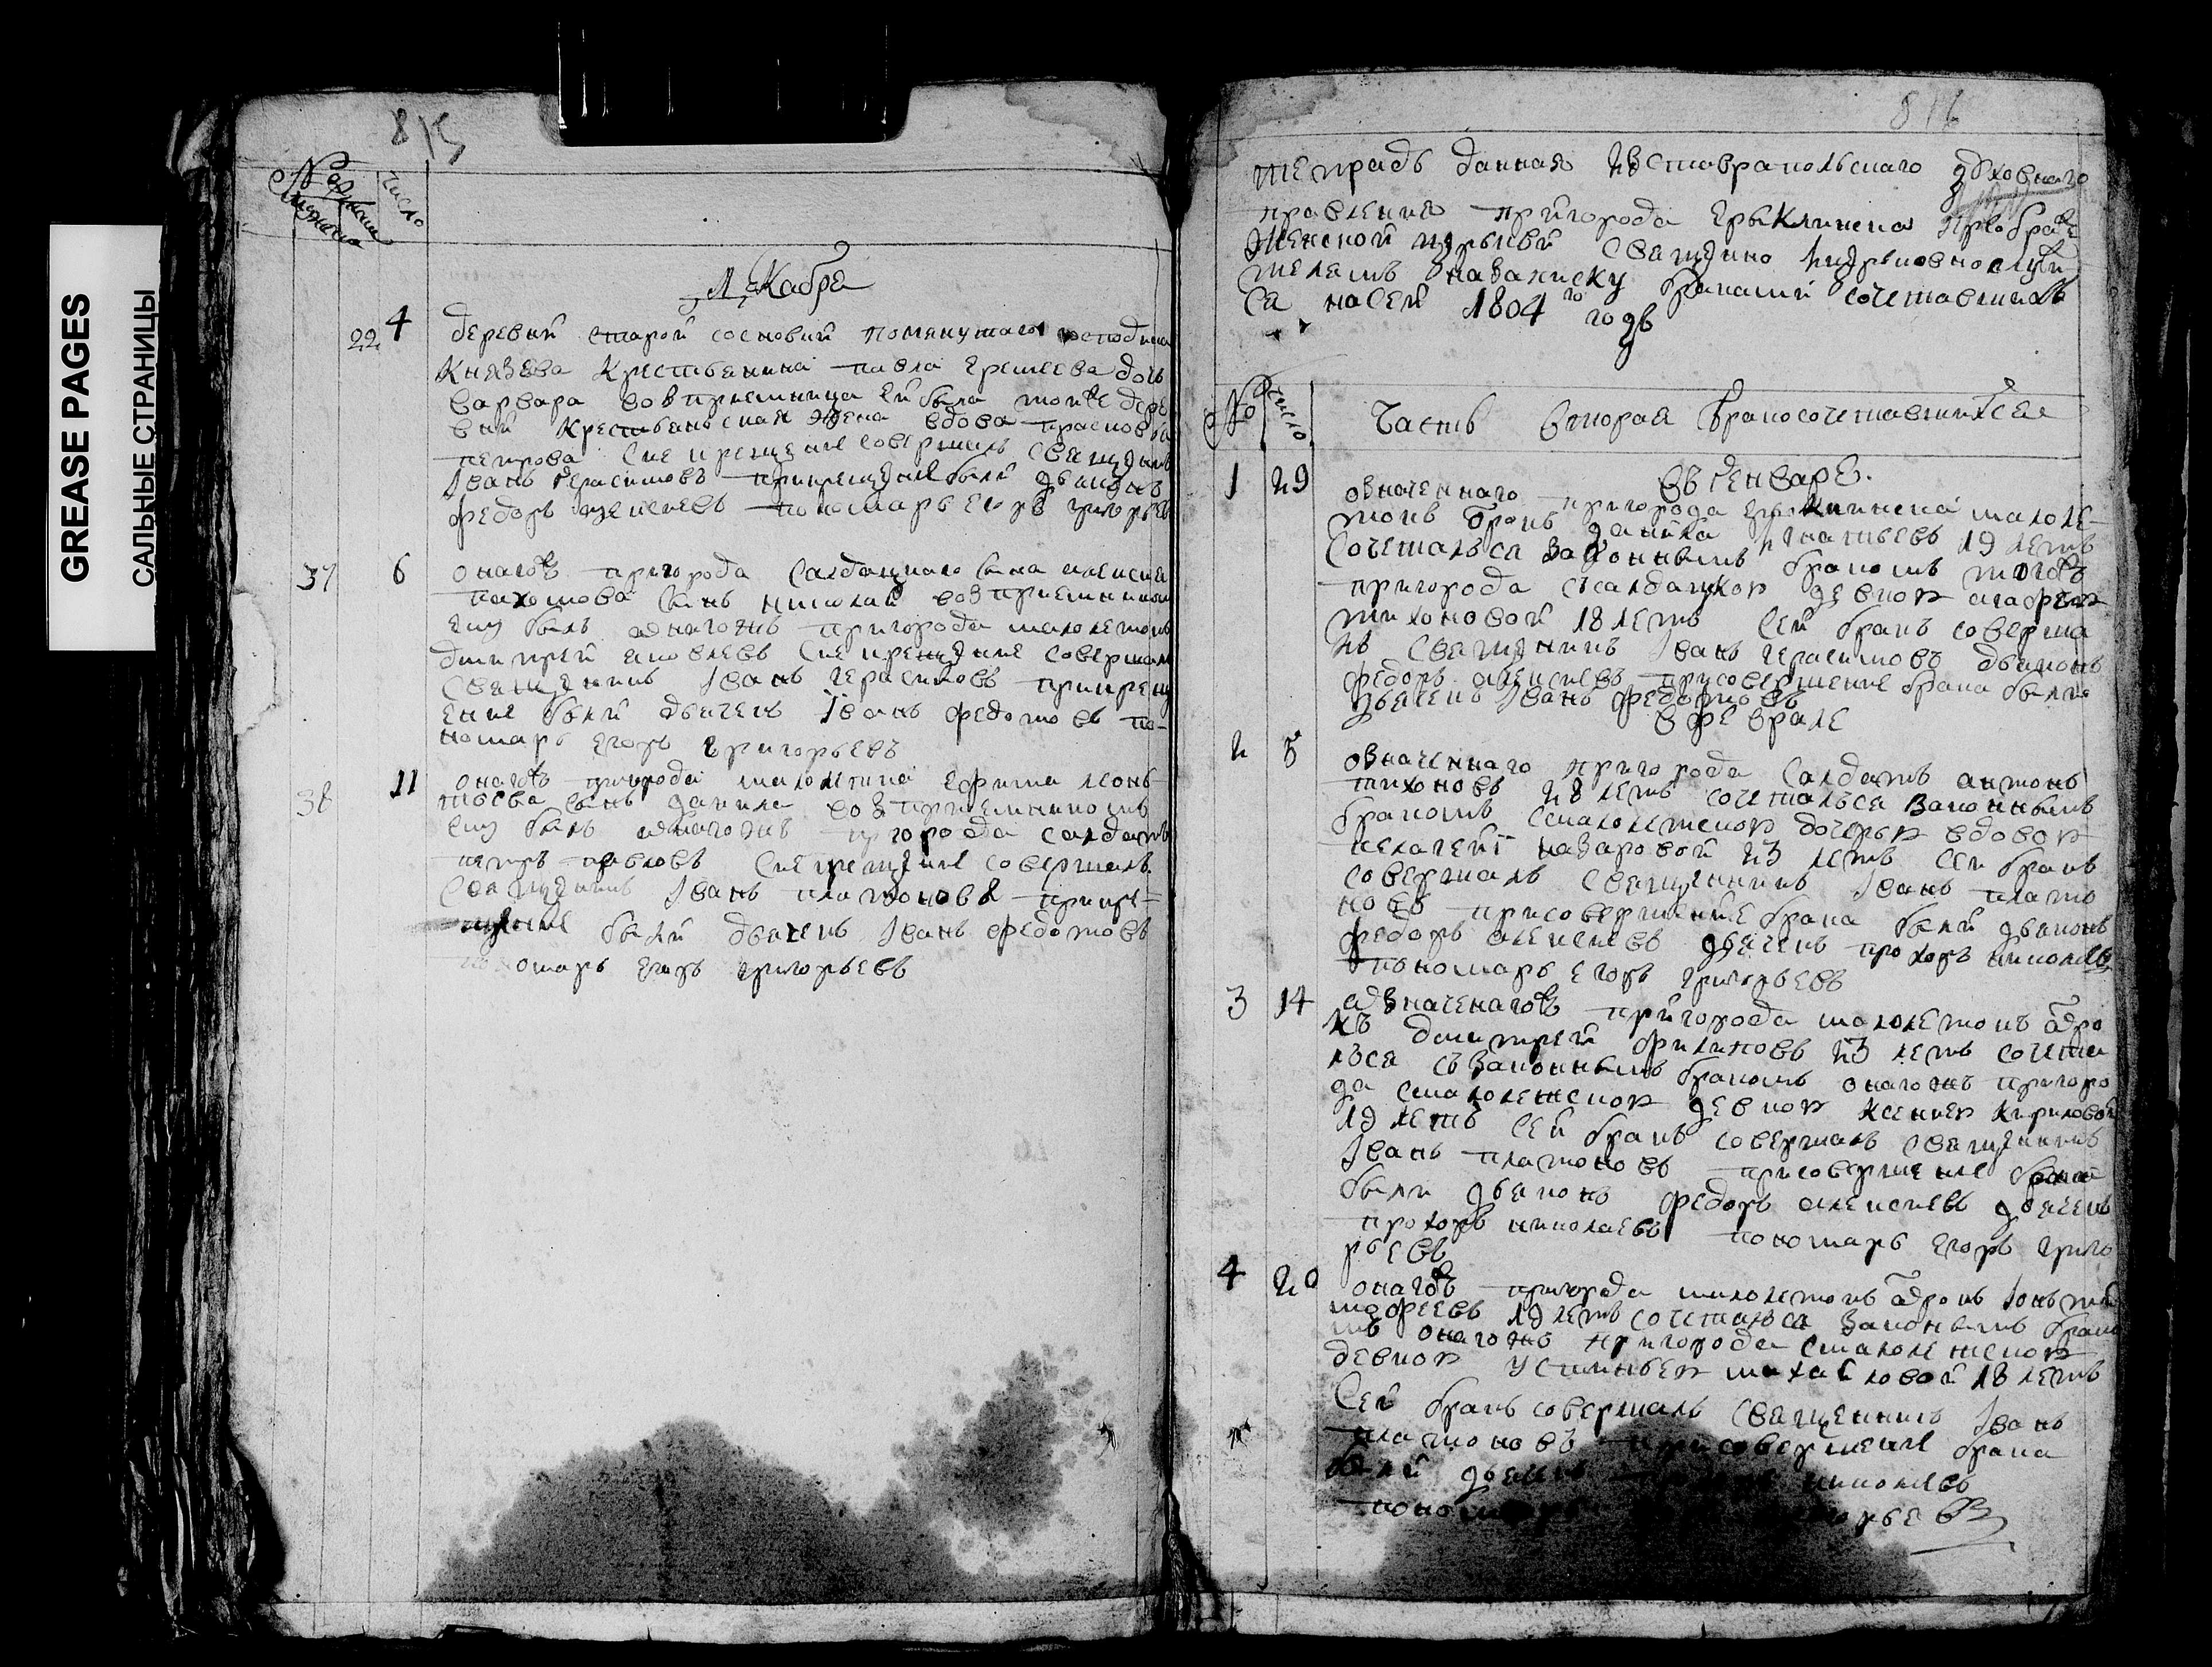 GREASE PAGES
САЛЬНЫЕ СТРАНИЦЫ
815
№
число
Декабра
22 4 деревни старой сосновки помянутаго господина
Князева Крестьянина павла дочь
варвара восприемница ей была тойже дере
вни Крестьянская жена вдова
петрова Сие крещение совершилъ Священникъ
Іванъ Герасимовъ прикрещении были дьяконъ
федоръ алексеевъ пономарь Егоръ григорьев
37 6 онагожъ пригорода Салдацкаго сына алексея
пахомова сынъ николай восприемникомъ
ему былъ онагожъ пригорода малолетокъ
дмитрей яковлевъ Сие крещение совершалъ
Священникъ Іванъ Герасимовъ прикрещ
ение были дьячекъ Іванъ федотовъ по-
номарь Егоръ Григорьевъ
38 11 онагожъ пригорода малолетка Ефима леонь
тьева сынъ данила восприемникомъ
ему былъ онагожъ пригорода салдатъ
петръ павловъ Сие крещение совершалъ
Священникъ Іванъ платоновъ прикре-
щение были дьячекъ Іванъ федотовъ
пономарь Егоръ григорьевъ
816
тетрадь данная изставрапольскаго духовнаго
правления пригорода Ерыклинска преображ
женской церькви священно ицерьковнослужи
телемъ назаписку бракомъ сочетавших
са насей 1804го годъ
№ число Часть вторая бракосочетавшихся
въ генваре.
1 29 означеннаго пригорода Ерыклинска малоле-
токъ данила игнатьевъ 19 летъ
Сочетался законнымъ бракомъ тогожъ
пригорода съсалдацкою девкою агафьею
тихоновой 18 летъ Сей бракъ соверша
лъ Священникъ Іванъ герасимовъ дьяконъ
федоръ алексеевъ присовершение брака были
дьячекъ Іванъ федотовъ
в феврале
2 8 означеннаго пригорода Салдатъ антонъ
тихоновъ 28 летъ сочетался законнымъ
бракомъ смалолетскою дочерью вдовою
пелагеей назаровой 23 летъ сей бракъ
совершалъ Священникъ Іванъ плато
новъ присовершение брака были дьяконъ
федоръ алексеевъ дьячекъ прохоръ николаевъ
пономарь Егоръ григорьевъ
3 14 означенагожъ пригорода малолетокъ отро
къ дмитрей филиповъ 23 летъ сочета
лъса съзаконнымъ бракомъ онагожъ пригоро
да смалолетскою девкою Ксениею Кириловой
19 летъ Сей бракъ совершалъ священникъ
Іванъ платоновъ присовершение брака
были дьяконъ федоръ алексеевъ дьячекъ
прохоръ николаевъ пономарь Егоръ григо
рьевъ
4 20 онагожъ пригорода малолетокъ отрокъ
19 летъ сочетался законымъ брако
мъ онагожъ пригорода смалолетскою
девкою устиньею михайловой 18 летъ
Сей бракъ совершалъ священникъ Іванъ
платоновъ присовершение брака
были дьячекъ николаевъ
пономарь